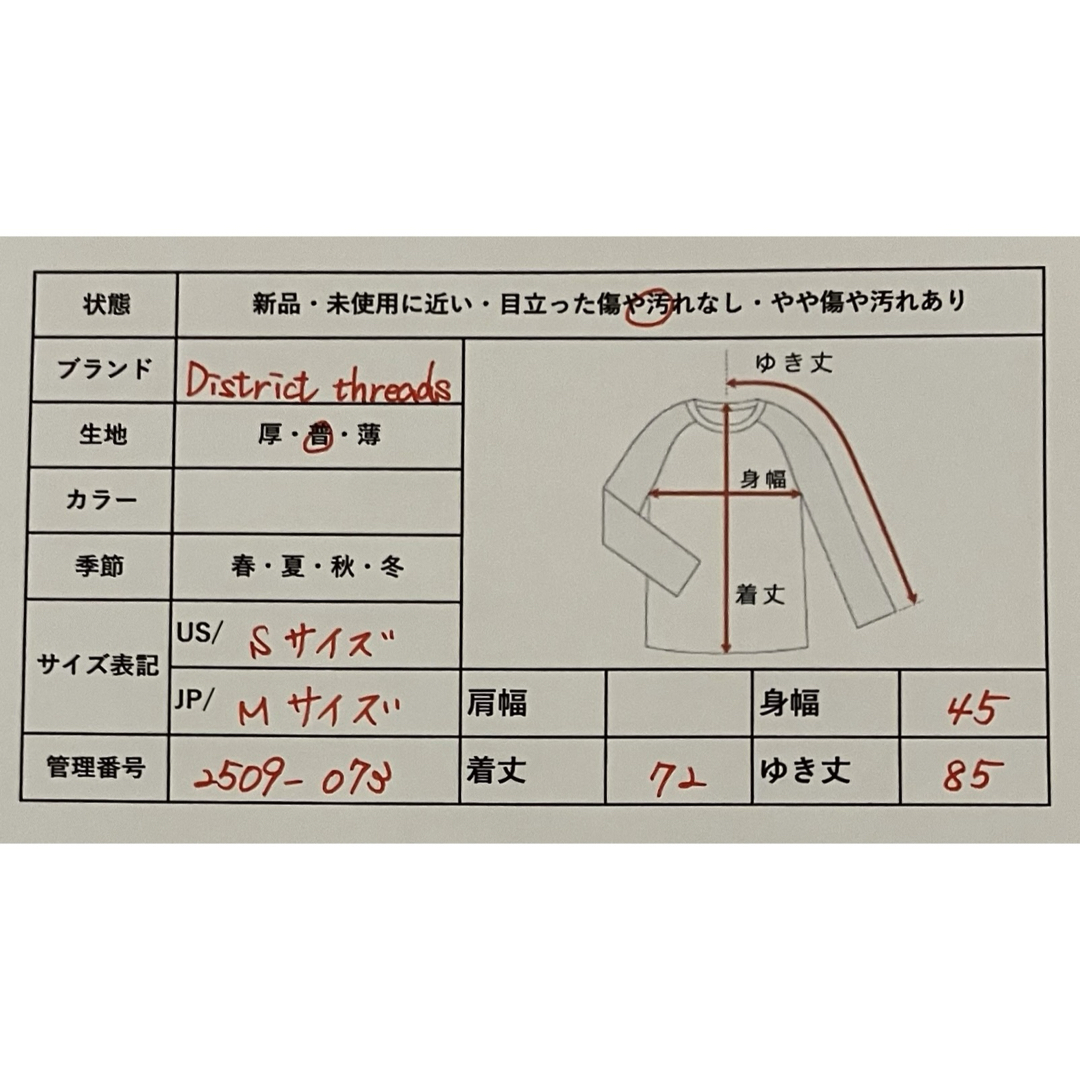 状態 新品・未使用に近い・目立った傷や汚れなし・やや傷や汚れあり
ブランド District threads
生地 厚・普・薄
カラー
季節 春・夏・秋・冬
サイズ表記
US/ Sサイズ
JP/ Mサイズ
管理番号 2509-073
ゆき丈
身幅
着丈
肩幅 身幅 45
着丈 72 ゆき丈 85